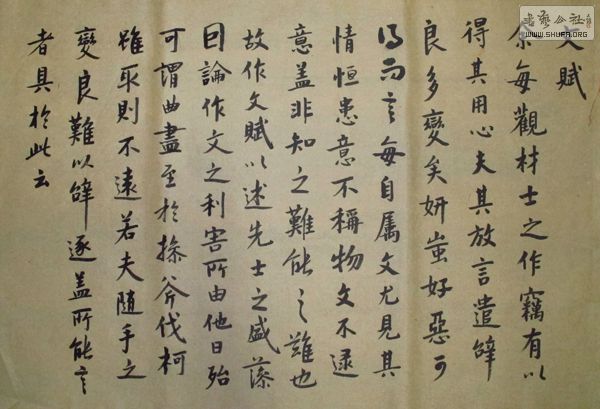 文賦
余每觀材士之作竊有以
得其用心夫其放言遣辭
良多變矣妍蚩好惡可
得而言每自屬文尤見其
情恒患意不稱物文不逮
意盖非知之難能之難也
故作文賦以述先士之盛藻
因論作文之利害所由他日殆
可謂曲盡至於操斧伐柯
雖取則不遠若夫隨手之
變良難以辭逐盖所能言
者具於此云
書藝公社
WWW.SHUFA.ORG